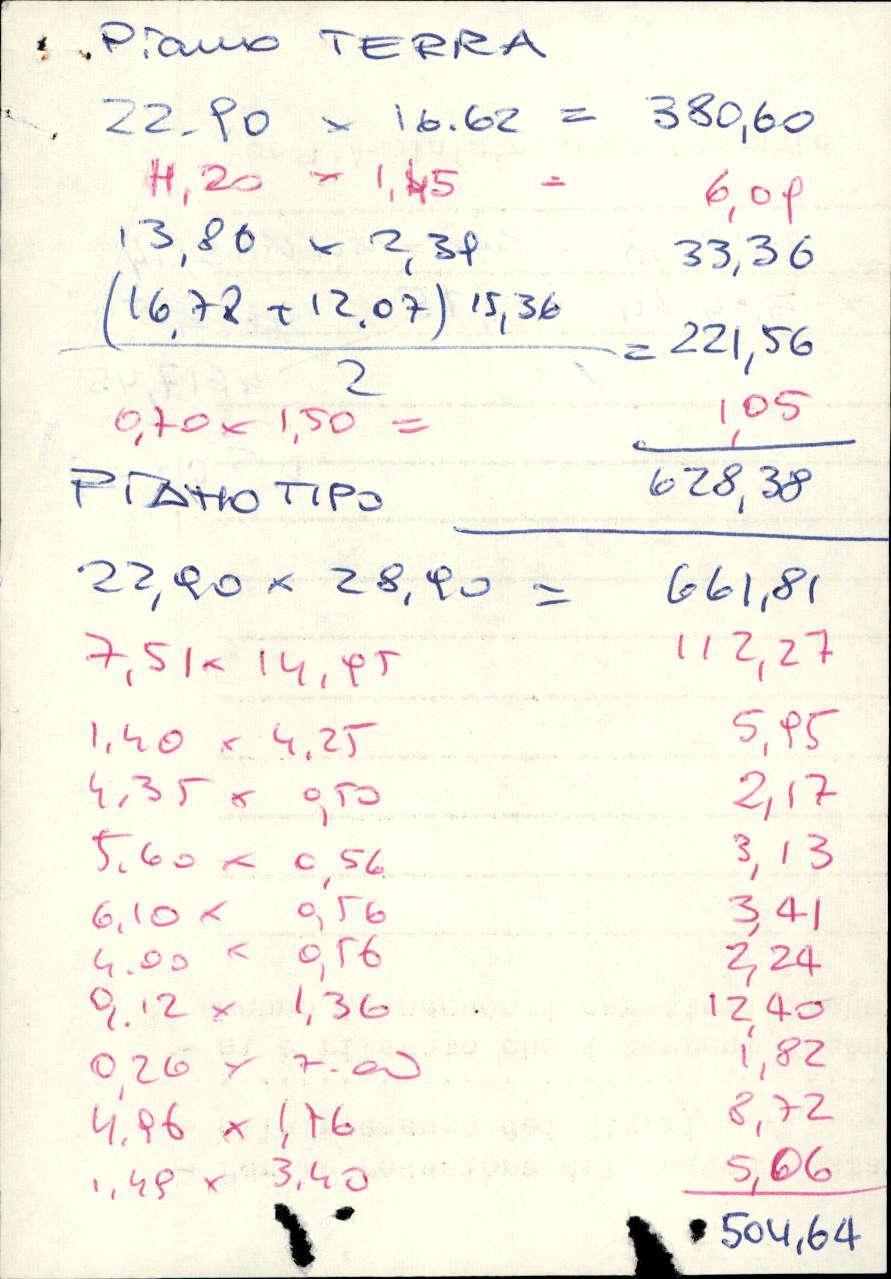 Piano TERRA
22.90 x 16.62 = 380,60
4,20 x 1,45 = 6,09
13,80 x 2,39 33,36
(16,78 + 12.07) 15,36
= 221,56
2
0,70 x 1,50 = 1,05
628,38
PIANO TIPO
22,90 x 28,90 = 661,81
7,51 x 14,95 112,27
1,40 x 4,25 5,95
4,35 x 0,50 2,17
5.60 x 0,56 3,13
6,10 x 0,56 3,41
4.00 x 0,56 2,24
9.12 x 1,36 12,40
0,26 x 7.00 1,82
4.96 x 1,76 8,72
1,49 x 3.40 5,06
504,64